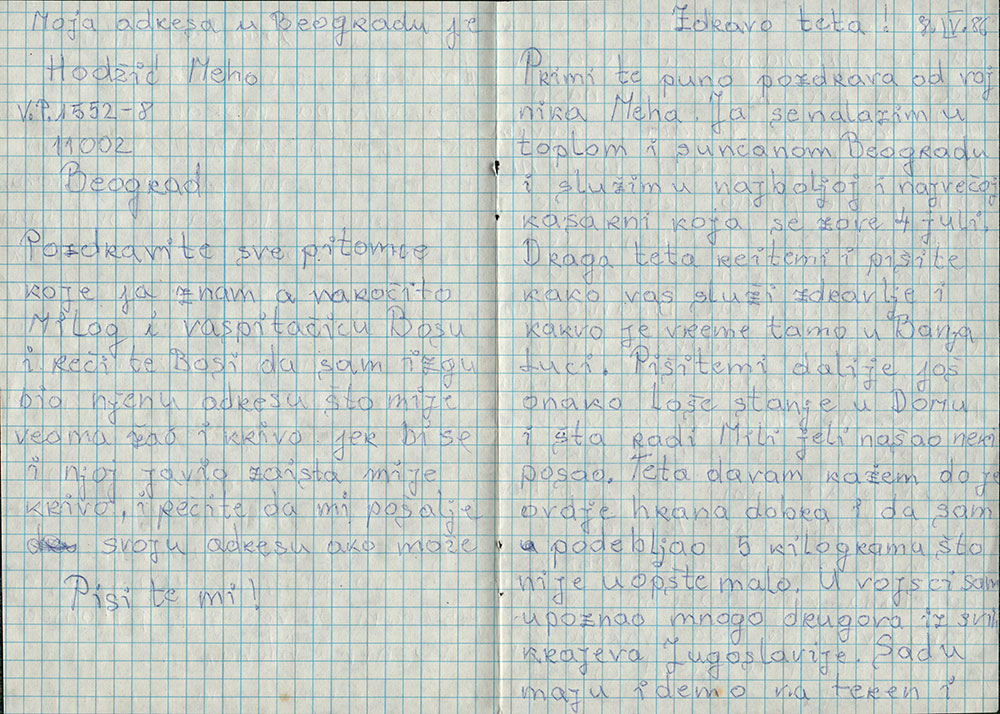 Moja adresa u Beogradu je
Hodžić Meho
V.P.1552-8
11002
Beograd
Pozdravite sve pitomce
koje ja znam a naročito
Milog i vaspitačicu Bosu
i reči te Bosi da sam izgu
bio njenu adresu što mije
veoma žao i krivo jer bi se
i njoj javio zaista mije
krivo, i rečite da mi pošalje
svoju adresu ako može
Piši te mi!
Zdravo teta! IV.86
Primi te puno pozdrava od voj
nika Meha. Ja se nalazim u
toplom i sunčanom Beogradu
i služim u najboljoj i najvećoj
kasarni koja se zove 4 juli.
Draga teta recitemi i pišite
kako vas služi zdravlje i
kakvo je vreme tamo u Banja
Luci. Pišitemi dalije još
onako loše stanje u Domu
i šta radi Mili jeli našao neki
posao. Teta davam kažem da je
ovdje hrana dobra i da sam
podebljao 5 kilograma što
nije uopšte malo. U vojsci sam
upoznao mnogo drugova iz svih
krajeva Jugoslavije. Sadu
maju idemo na teren i